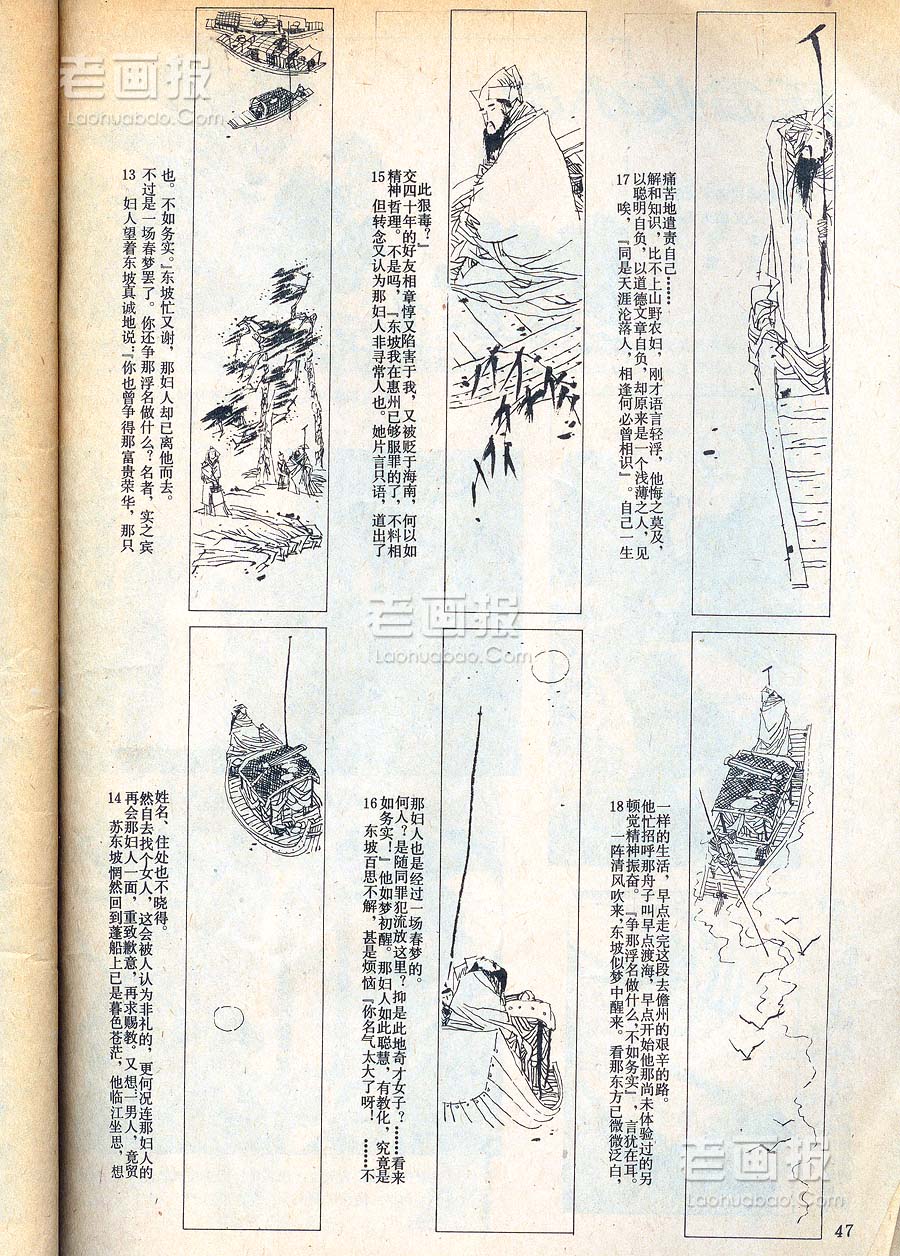 老画报
Laonuabao.Com
13 妇人望着东坡真诚地说:『你也曾争得那富贵荣华,那只
不过是一场春梦罢了。你还争那浮名做什么?名者,实之宾
也。不如务实。』东坡忙又谢,那妇人却已离他而去。
14 苏东坡惘然回到蓬船上已是暮色苍茫,他临江坐思,想
再会那妇人一面,重致歉意,再求赐教。又想:一男人,竟贸
然自去找个女人,这会被人认为非礼的,更何况连那妇人的
姓名、住处也不晓得。
15 但转念又认为那妇人非寻常人也。她片言只语,道出了
精神哲理。不是吗,『东坡我在惠州已够服罪的了,不料相
交四十年的好友相章惇又陷害于我,又被贬于海南,何以如
此狠毒?』
老画报
Laonuabao.Com
16 东坡百思不解,甚是烦恼『你名气太大了呀!……不
如务实!』他如梦初醒。那妇人如此聪慧,有教化,究竟是
何人?是随同罪犯流放这里?抑是此地奇才女子?……看来
那妇人也是经过一场春梦的。
17 唉,『同是天涯沦落人,相逢何必曾相识』。自己一生
以聪明自负,以道德文章自负,却原来是一个浅薄之人,见
解和知识,比不上山野农妇,刚才语言轻浮,他悔之莫及,
痛苦地遣责自己……
18 一阵清风吹来,东坡似梦中醒来。看那东方已微微泛白,
顿觉精神振奋。『争那浮名做什么,不如务实』,言犹在耳。
他忙招呼那舟子叫早点渡海,早点开始他那尚未体验过的另
一样的生活,早点走完这段去儋州的艰辛的路。
老画报
Laonuabao.Com
47